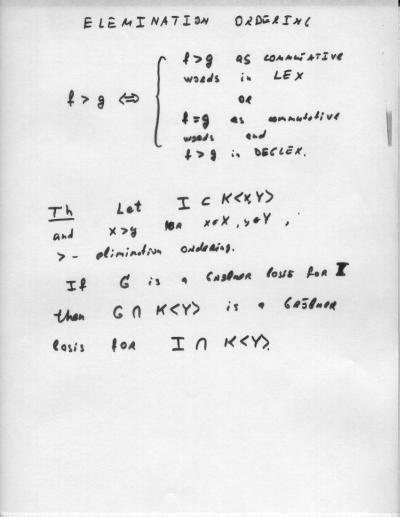 ELEMINATION ORDERING
f > g as commutative
words in LEX
f > g ⇔ OR
f = g as commutative
words and
f > g in DEGLEX.
Th Let I ⊂ K<X,Y>
and x>y for x∈X, y∈Y,
> - elimination ordering.
If G is a Gröbner basis for I
then G ∩ K<Y> is a Gröbner
basis for I ∩ K<Y>.